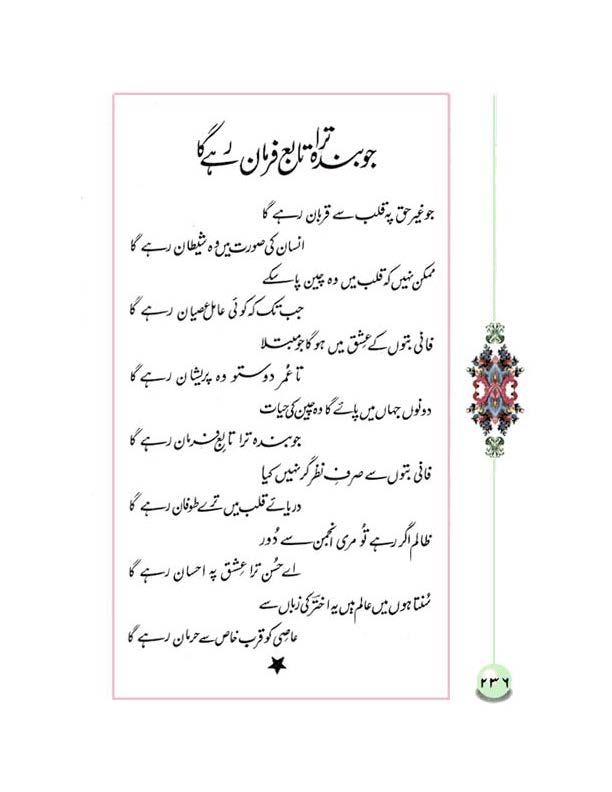 جو بندہ ترا تابع فرمان رہے گا
جو غیر حق پہ قلب سے قربان رہے گا
انسان کی صورت میں وہ شیطان رہے گا
ممکن نہیں کہ قلب میں وہ چین پا سکے
جب تک کہ کوئی عامل عصیان رہے گا
فانی بتوں کے عِشق میں ہو گا جو مبتلا
تا عُمر دوستو وہ پریشان رہے گا
دونوں جہاں میں پائے گا وہ چین کی حیات
جو بندہ ترا تابع فرمان رہے گا
فانی بتوں سے صرفِ نظر گر نہیں کیا
دریائے قلب میں ترے طوفان رہے گا
ظالم اگر رہے تُو مری انجمن سے دُور
اے حُسن ترا عِشق پہ احسان رہے گا
سُنتا ہوں میں عالم میں یہ اخترؔ کی زباں سے
عاصِی کو قرب خاص سے حرمان رہے گا
۲۳۶